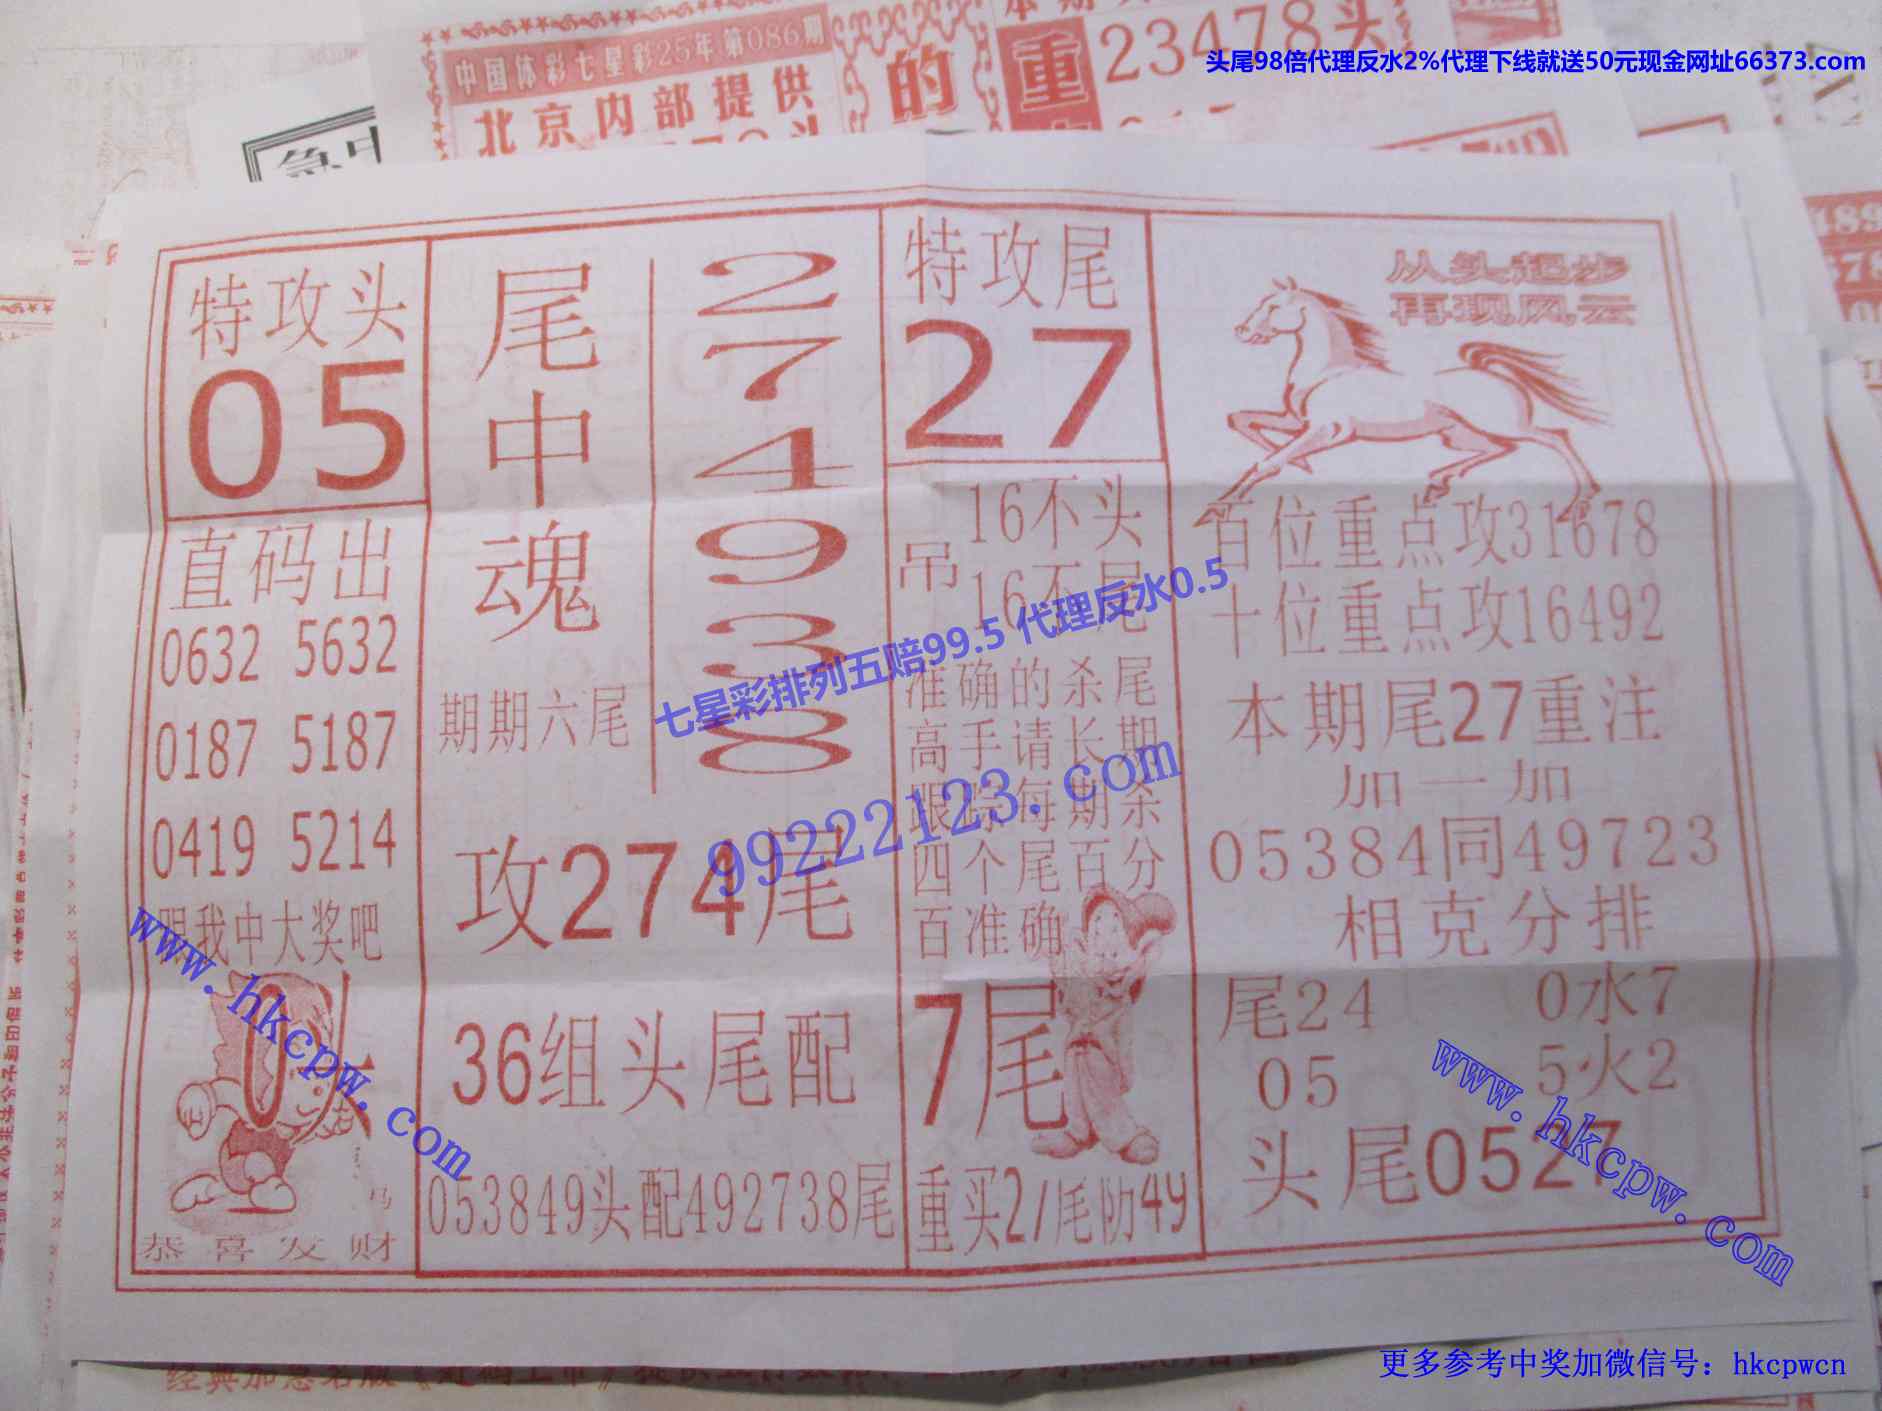 头尾98倍代理反水2%代理下线就送50元现金网址66373.com
中国体彩七星彩25年第086期
北京内部提供
的
重
23478头
特攻头
05
直码出
0632 5632
0187 5187
0419 5214
跟我中大奖吧
0头
马
恭喜发财
尾中魂
274938
期期六尾
攻274尾
36组头尾配
053849头配492738尾
特攻尾
27
吊
16不头
16不尾
准确的杀尾
高手请长期
跟踪每期杀
四个尾百分
百准确
7尾
重买27尾防49
从头起步
再现风云
百位重点攻31678
十位重点攻16492
本期尾27重注
加一加
05384同49723
相克分排
尾24 0水7
05 5火2
头尾0527
七星彩排列五赔99.5 代理反水0.5
99222123.com
www.hkcpw.com
www.hkcpw.com
更多参考中奖加微信号：hkcpwcn